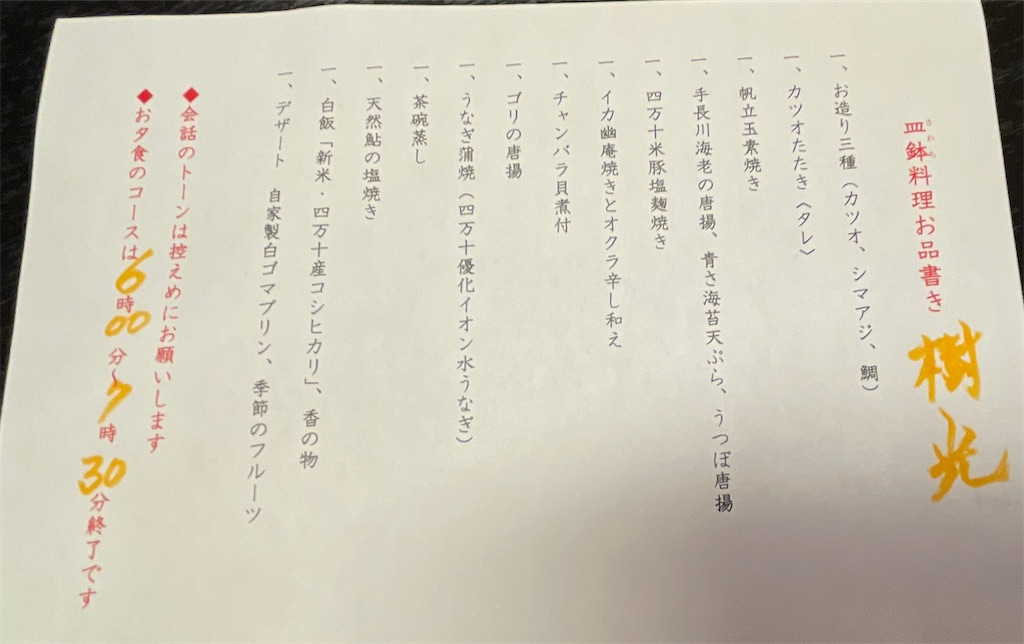 皿鉢料理お品書き 樹光
さわち
一、お造り三種（カツオ、シマアジ、鯛）
一、カツオたたき〈タレ〉
一、帆立玉素焼き
一、手長川海老の唐揚、青さ海苔天ぷら、うつぼ唐揚
一、四万十米豚塩麹焼き
一、イカ幽庵焼きとオクラ辛し和え
一、チャンバラ貝煮付
一、ゴリの唐揚
一、うなぎ蒲焼（四万十優化イオン水うなぎ）
一、茶碗蒸し
一、天然鮎の塩焼き
一、白飯「新米・四万十産コシヒカリ」、香の物
一、デザート 自家製白ゴマプリン、季節のフルーツ
◆会話のトーンは控えめにお願いします
◆お夕食のコースは6時00分〜7時30分終了です